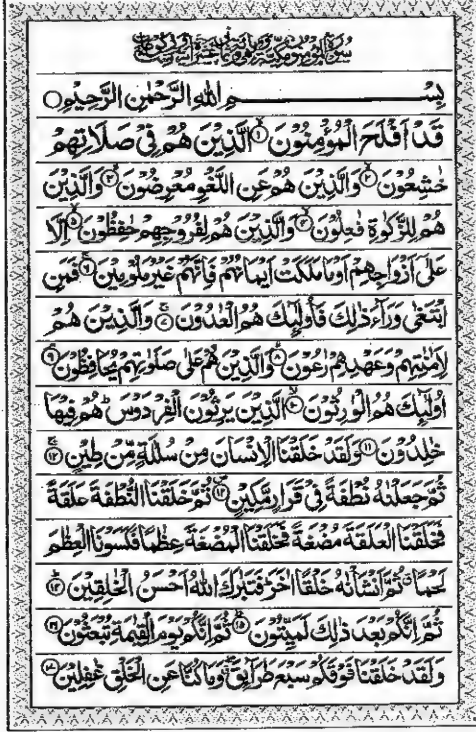 بِسْمِ اللهِ الرَّحْمٰنِ الرَّحِيْمِ ○
قَدْ اَفْلَحَ الْمُؤْمِنُوْنَ ۝۱ الَّذِيْنَ هُمْ فِيْ صَلَاتِهِمْ
خٰشِعُوْنَ ۝۲ وَالَّذِيْنَ هُمْ عَنِ اللَّغْوِ مُعْرِضُوْنَ ۝۳ وَالَّذِيْنَ
هُمْ لِلزَّكٰوةِ فٰعِلُوْنَ ۝۴ وَالَّذِيْنَ هُمْ لِفُرُوْجِهِمْ حٰفِظُوْنَ ۝۵ اِلَّا
عَلٰٓى اَزْوَاجِهِمْ اَوْ مَا مَلَكَتْ اَيْمَانُهُمْ فَاِنَّهُمْ غَيْرُ مَلُوْمِيْنَ ۝۶ فَمَنِ
ابْتَغٰى وَرَآءَ ذٰلِكَ فَاُولٰٓئِكَ هُمُ الْعٰدُوْنَ ۝۷ وَالَّذِيْنَ هُمْ
لِاَمٰنٰتِهِمْ وَعَهْدِهِمْ رٰعُوْنَ ۝۸ وَالَّذِيْنَ هُمْ عَلٰى صَلَوٰتِهِمْ يُحَافِظُوْنَ ۝۹
اُولٰٓئِكَ هُمُ الْوٰرِثُوْنَ ۝۱۰ الَّذِيْنَ يَرِثُوْنَ الْفِرْدَوْسَ ؕ هُمْ فِيْهَا
خٰلِدُوْنَ ۝۱۱ وَلَقَدْ خَلَقْنَا الْاِنْسَانَ مِنْ سُلٰلَةٍ مِّنْ طِيْنٍ ۝۱۲
ثُمَّ جَعَلْنٰهُ نُطْفَةً فِيْ قَرَارٍ مَّكِيْنٍ ۝۱۳ ثُمَّ خَلَقْنَا النُّطْفَةَ عَلَقَةً
فَخَلَقْنَا الْعَلَقَةَ مُضْغَةً فَخَلَقْنَا الْمُضْغَةَ عِظٰمًا فَكَسَوْنَا الْعِظٰمَ
لَحْمًا ۗ ثُمَّ اَنْشَاْنٰهُ خَلْقًا اٰخَرَ ؕ فَتَبٰرَكَ اللهُ اَحْسَنُ الْخٰلِقِيْنَ ۝۱۴
ثُمَّ اِنَّكُمْ بَعْدَ ذٰلِكَ لَمَيِّتُوْنَ ۝۱۵ ثُمَّ اِنَّكُمْ يَوْمَ الْقِيٰمَةِ تُبْعَثُوْنَ ۝۱۶
وَلَقَدْ خَلَقْنَا فَوْقَكُمْ سَبْعَ طَرَآئِقَ ۖ وَمَا كُنَّا عَنِ الْخَلْقِ غٰفِلِيْنَ ۝۱۷